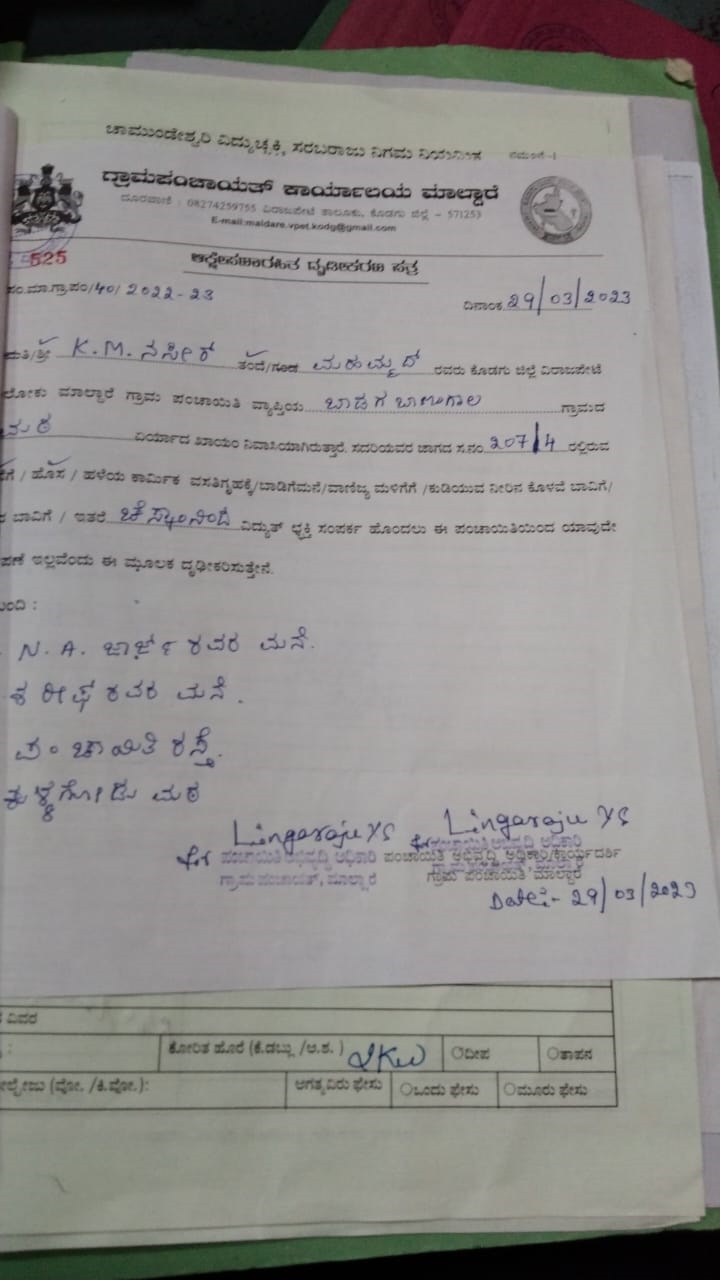 ಚಾಮುಂಡೇಶ್ವರಿ ವಿದ್ಯುಚ್ಛಕ್ತಿ ಸರಬರಾಜು ನಿಗಮ ನಿಯಮಿತ
ಗ್ರಾಮಪಂಚಾಯತ್ ಕಾರ್ಯಾಲಯ ಮಾಲ್ದಾರೆ
ದೂರವಾಣಿ : 08274259755 ವಿರಾಜಪೇಟೆ ತಾಲೂಕು, ಕೊಡಗು ಜಿಲ್ಲೆ - 571253
E-mail:maldare.vpet.kodg@gmail.com
525
ಆಕ್ಷೇಪಣಾರಹಿತ ದೃಢೀಕರಣ ಪತ್ರ
ಸಂ.ಮಾ.ಗ್ರಾ.ಪಂ/40/2022-23
ದಿನಾಂಕ 29/03/2023
ಮತಿ/ಶ್ರೀ K.M. ನಸೀರ್ ತಂದೆ/ಗಂಡ ಮಹಮ್ಮದ್ ರವರು ಕೊಡಗು ಜಿಲ್ಲೆ ವಿರಾಜಪೇಟೆ
ಲೋಕು ಮಾಲ್ದಾರೆ ಗ್ರಾಮ ಪಂಚಾಯಿತಿ ವ್ಯಾಪ್ತಿಯ ಬಾಡಗ ಬಾಣಂಗಾಲ ಗ್ರಾಮದ
ಮಠ ಏರ್ಯಾದ ಖಾಯಂ ನಿವಾಸಿಯಾಗಿರುತ್ತಾರೆ. ಸದರಿಯವರ ಜಾಗದ ಸ.ನಂ. 207/4 ರಲ್ಲಿರುವ
ಗೆ / ಹೊಸ / ಹಳೆಯ ಕಾರ್ಮಿಕ ವಸತಿಗೃಹಕ್ಕೆ/ಬಾಡಿಗೆಮನೆ/ವಾಣಿಜ್ಯ ಮಳಿಗೆಗೆ /ಕುಡಿಯುವ ನೀರಿನ ಕೊಳವೆ ಬಾವಿಗೆ/
ದ ಬಾವಿಗೆ / ಇತರೆ ಚೆಸ್ಕಾಂನಿಂದ ವಿದ್ಯುತ್ ಛ್ಛಕ್ತಿ ಸಂಪರ್ಕ ಹೊಂದಲು ಈ ಪಂಚಾಯಿತಿಯಿಂದ ಯಾವುದೇ
ಪಣೆ ಇಲ್ಲವೆಂದು ಈ ಮೂಲಕ ದೃಢೀಕರಿಸುತ್ತೇನೆ.
ಬಂದಿ :
N.A. ಜಾರ್ಜ್ ರವರ ಮನೆ.
ಶರೀಫ್ ರವರ ಮನೆ.
ಪಂಚಾಯಿತಿ ರಸ್ತೆ.
ಮಠ
Lingaraju YS Lingaraju YS
ಪಂಚಾಯಿತಿ ಅಭಿವೃದ್ಧಿ ಅಧಿಕಾರಿ ಪಂಚಾಯಿತಿ ಅಭಿವೃದ್ಧಿ ಅಧಿಕಾರಿ/ಕಾರ್ಯದರ್ಶಿ
ಗ್ರಾಮ ಪಂಚಾಯತ್, ಮಾಲ್ದಾರೆ ಗ್ರಾಮ ಪಂಚಾಯಿತಿ ಮಾಲ್ದಾರೆ
Date:- 29/03/2023
ವಿವರ
ಕೋರಿತ ಹೊರೆ (ಕೆ.ಡಬ್ಲ್ಯು /ಅ.ಶ. ) 2KW ದೀಪ ತಾಪನ
(ವೋ. /ಕಿ.ವೋ.): ಅಗತ್ಯವಿರು ಫೇಸು ಒಂದು ಫೇಸು ಮೂರು ಫೇಸು